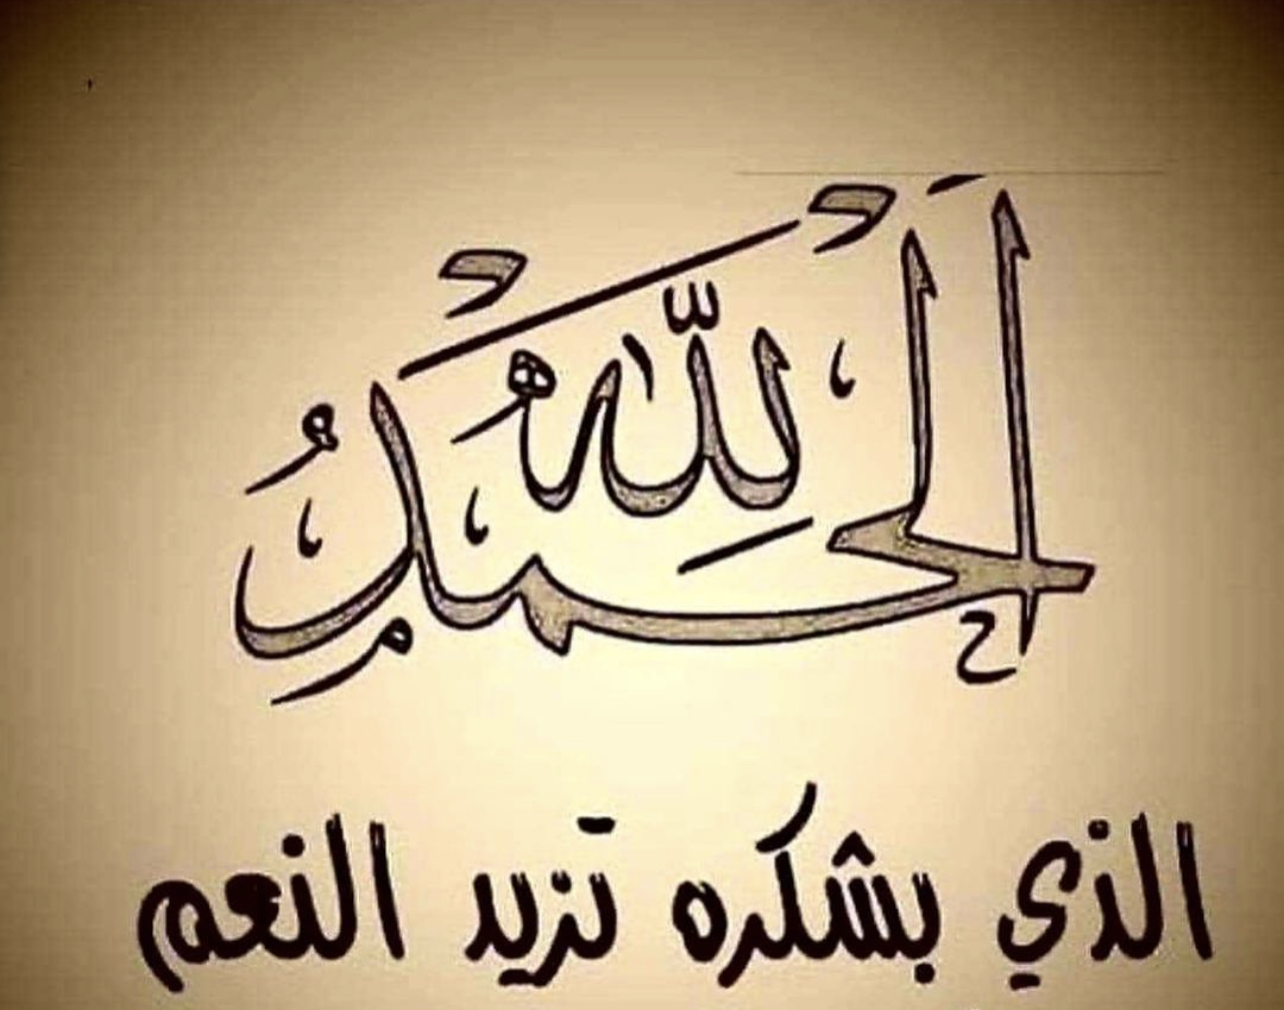 الحَمْدُ لِلّٰهِ
الذي بشكره تزيد النعم